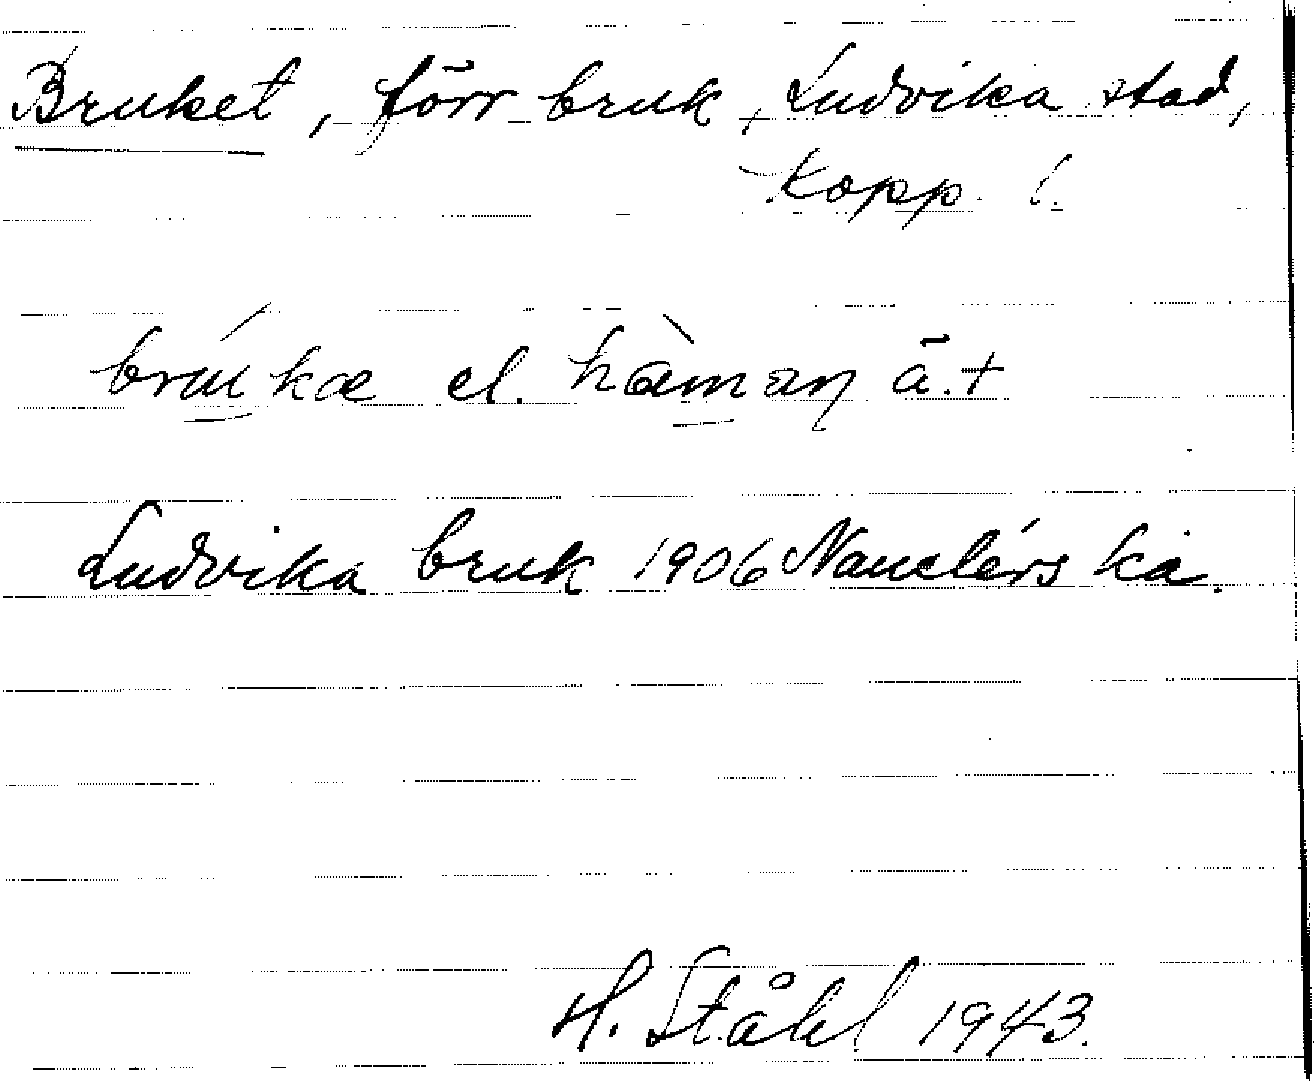 Bruket, förr bruk, Ludvika stad,
Kopp. l.
brúkæ el. hàmaŋ ä.+
Ludvika bruk 1906 Nauclérs ka.
H. Ståhl 1943.